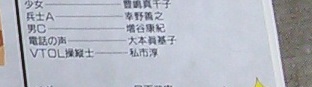 少女——————豊嶋真千子
兵士A—————幸野善之
男C——————増谷康紀
電話の声————大本眞基子
VTOL操縦士——私市淳